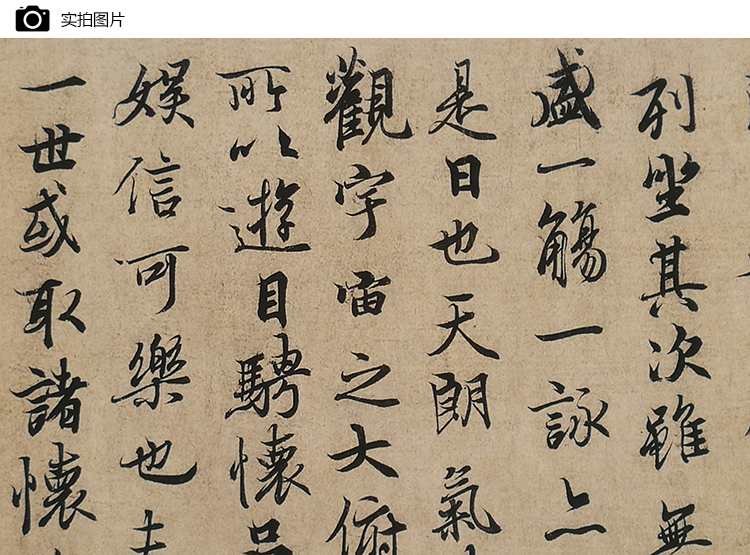 实拍图片
列坐其次雖無
盛一觴一詠亦
是日也天朗氣
觀宇宙之大俯
所以遊目騁懷
娛信可樂也夫
一世或取諸懷